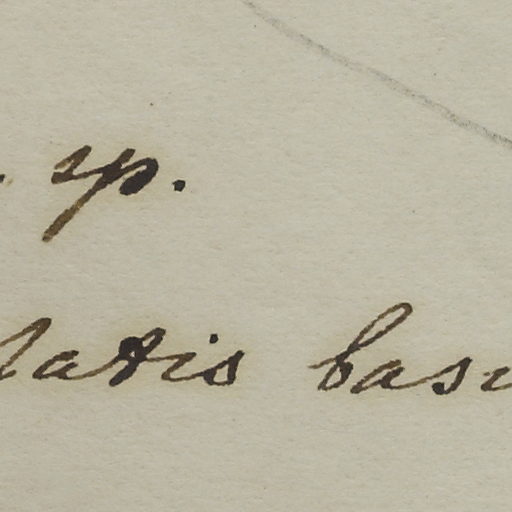 . sp.
latis basi